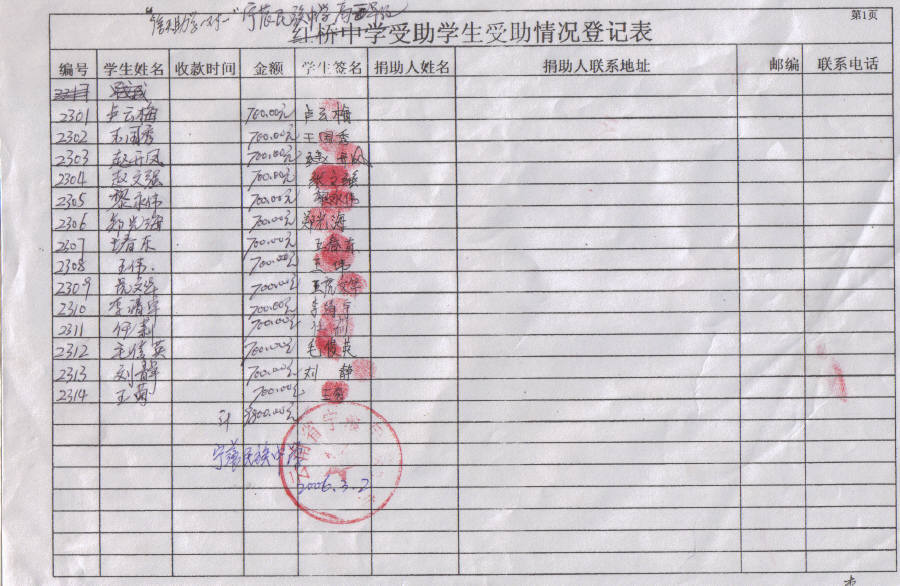 第1页
宁蒗民族中学高
红桥中学受助学生受助情况登记表
编号 学生姓名 收款时间 金额 学生签名 捐助人姓名 捐助人联系地址 邮编 联系电话
2301 卢云梅 700.00元 卢云梅
2302 王国秀 700.00元 王国秀
2303 赵开凤 700.00元 赵开凤
2304 赵文强 700.00元 文强
2305 黎永伟 700.00元 黎永伟
2306 郑光海 700.00元 郑光海
2307 王春东 700.00元 王春东
2308 王伟 700.00元 王伟
2309 虎文华 700.00元 虎文华
2310 李靖宇 700.00元 李靖宇
2311 何莉 700.00元 何莉
2312 毛俊英 700.00元 毛俊英
2313 刘静 700.00元 刘静
2314 王菊 700.00元 王菊
计 9800.00元
云南省宁蒗
宁蒗民族中学
2006.3.2